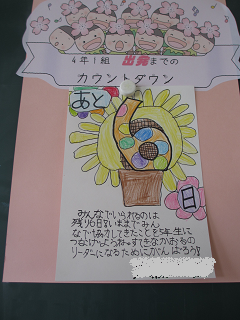 4年1組 出発までの
カウントダウン
あと
6
日
みんなでいられるのは
残り6日!!いままでみん
なで協力してきたことを5年生に
つなげられようね。すてきなかおもの
リーダーになるためにがんばろう!!